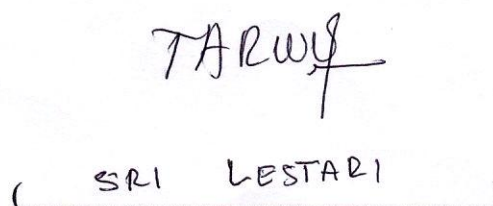 TARWY
( SRI LESTARI